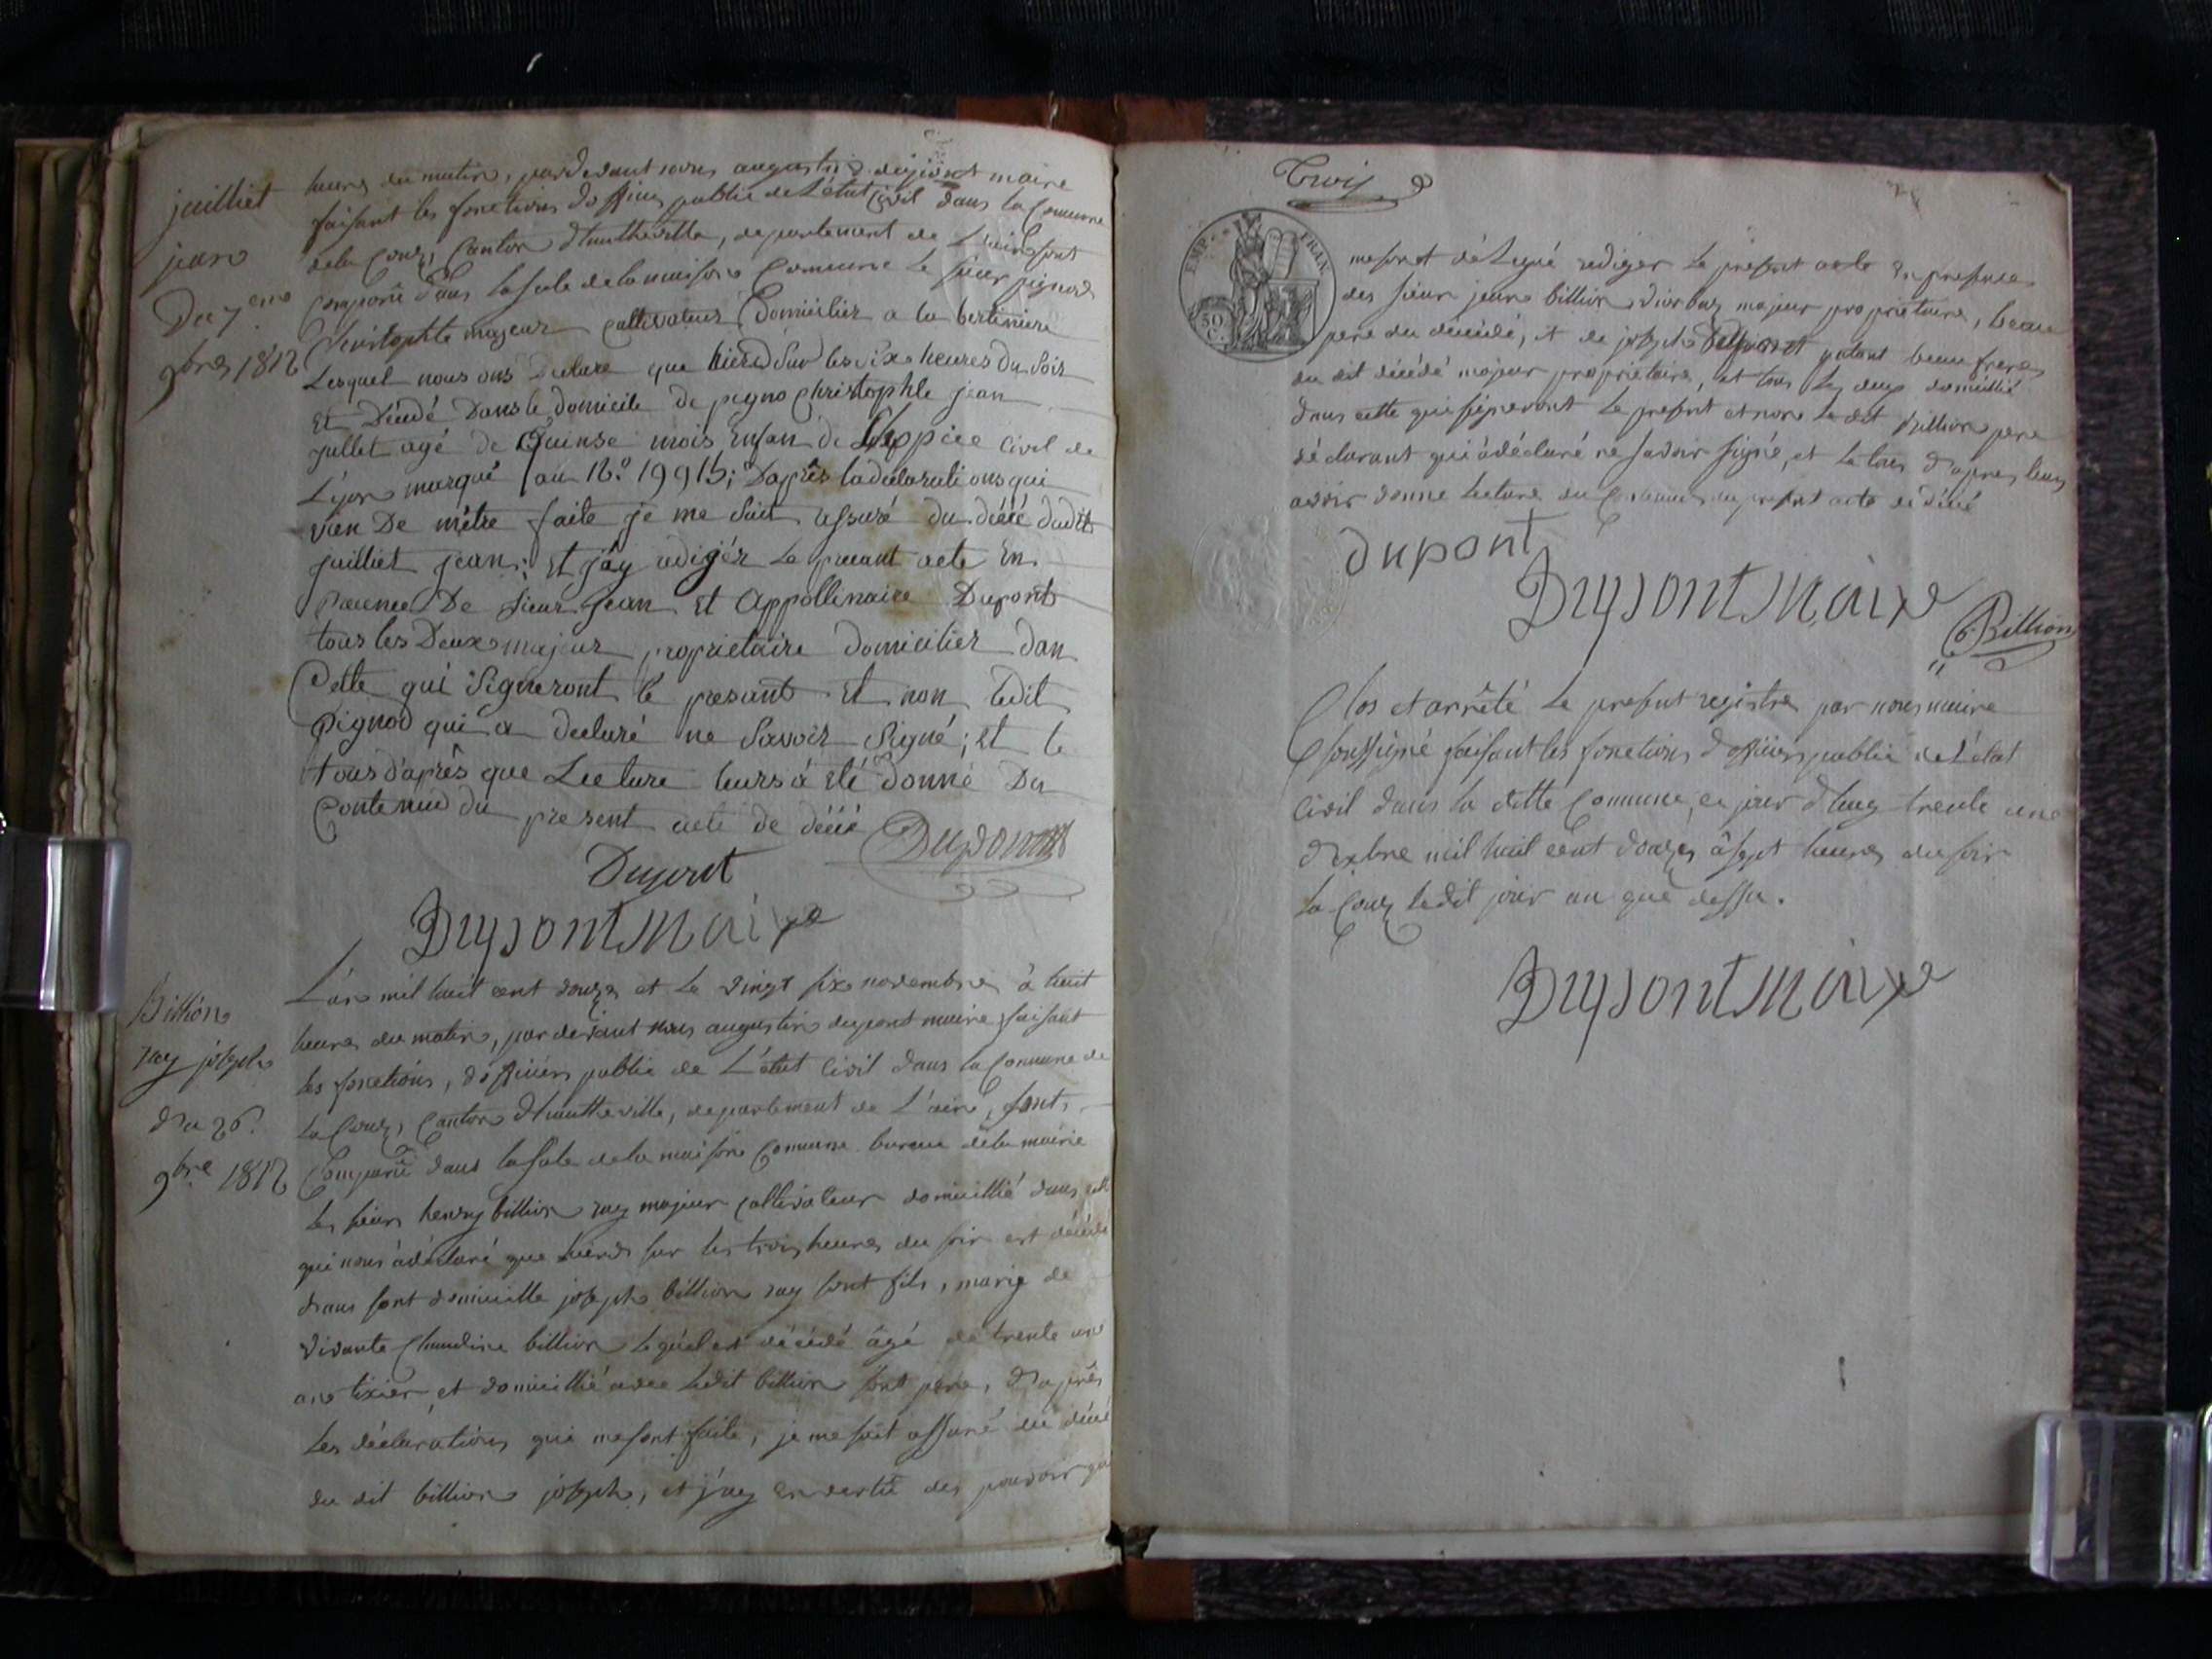 juilliet
jean
Du 7.eme
9bre 1812
heures du matin, pardevant nous augustin dupont maire
faisant les fonctions d'officier public de L'état Civil dans la Commune
de la Couz, Canton d'hautheville, departement de L'ain sont
Comparû dans la sale de la maison Commune Le sieur pignod
Christophle majeur cultivateur Domicilier a la bertiniere
Lesquel nous ons Déclaré que hierd sur les six heures Du Soir
Et Décédé Dans le domicile De pigno Christophle jean
jullet agé de Quinse mois Enfan de L'hospice Civil de
Lÿon marqué au N.º 19915; D'après la déclarations qui
vien De mêtre faite je me Suit assuré du décé dudit
juilliet jean; Et j'ay redigér Le presant acte En
presence De sieur jean Et Appollinaire Dupont
tous les Deux majeur propriétaire Domicilier dan
Cette qui Signeront le presant Et non ledit
Pignod qui a declaré ne Savoir Signé; Et le
tous d'après que Lecture leurs à été donné Du
Contenud du present acte de décé
Dupont
Dupont
Dupont Maire
Billion
ray joseph
du 26.
9bre 1812
L'an mil huit cent douze et Le vingt six novembre à huit
heures du matin, par devant nous augustin dupont maire faisant
les fonctions, d'officier public de L'état Civil dans la Commune de
la Couz, Canton d'hautheville, departement de L'ain, sont
Comparû dans la sale de la maison Comune bureau de la mairie
Le sieur henry billion ray majeur cultivateur domicillié dans cette
qui nous à déclaré que hierd sur les trois heures du soir est décédé
dans sont domicille joseph billion ray sont fils, marié de
vivante Claudine billion Lequel est décédé âgé de trente un
ans tixier et domicillié avec ledit billion sont pere, d'après
Les déclarations qui me sont faite, je me suit assuré du décé
du dit billion joseph, et j'ay en vertû des pouvoir qui
Trois
EMP. FRAN.
50 C.
me sont déLegué rediger Le present acte En presence
des sieur jean billion diorbaz majeur propriétaire, beau
pere du décédé, et de joseph beau frere
du dit décédé majeur propriétaire, et tous Les deux domicillié
dans cette qui signeront Le present et non Le dit billion pere
déclarant qui à déclaré ne savoir signé, et Le tous d'apres leurs
avoir donné Lecture du Contenu du present acte de décé
dupont
Dupont Maire
Billion
Clos et arrêté Le present registre par nous maire
soussigné faisant les fonctions d'officier public de L'état
Civil dans la ditte Commune, ce jour d'huy trente une
d'xbre mil huit cent douze, à sept heures du soir
la Couz ledit jour an que dessu.
Dupont Maire